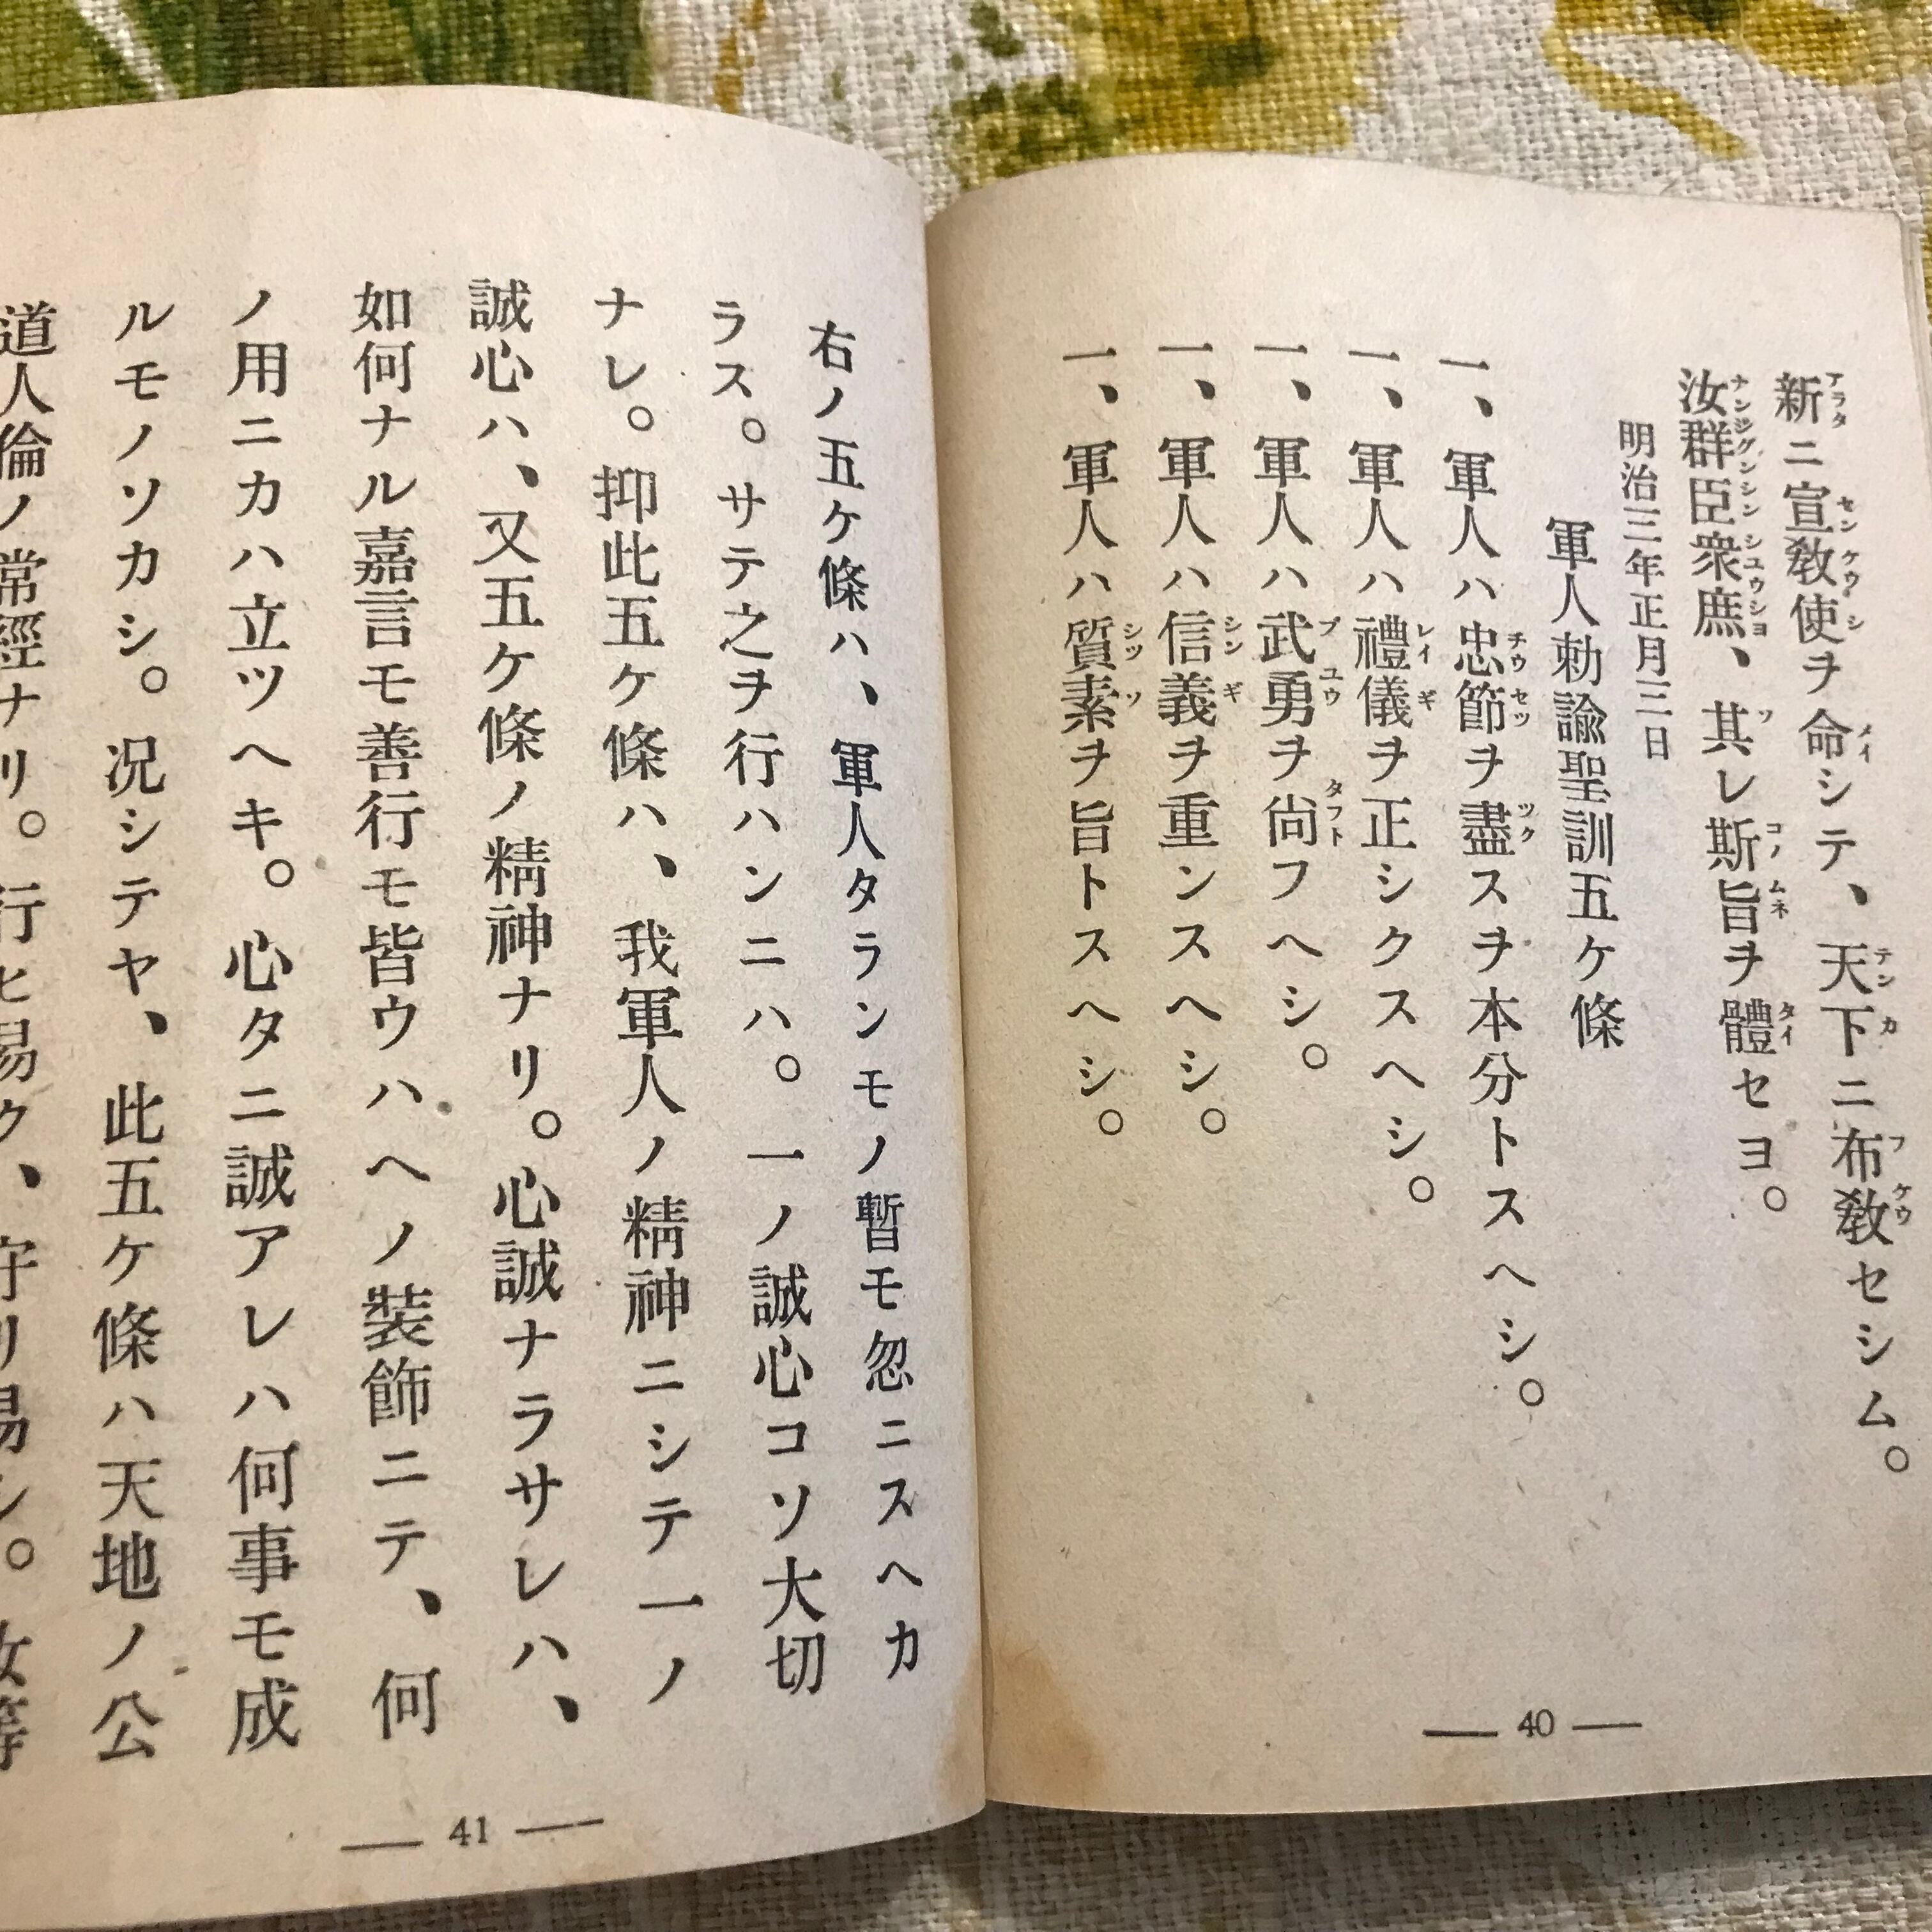 新ニ宣敎使ヲ命シテ、天下ニ布敎セシム。
汝群臣衆庶、其レ斯旨ヲ體セヨ。
明治三年正月三日
軍人勅諭聖訓五ケ條
一、軍人ハ忠節ヲ盡スヲ本分トスヘシ。
一、軍人ハ禮儀ヲ正シクスヘシ。
一、軍人ハ武勇ヲ尙フヘシ。
一、軍人ハ信義ヲ重ンスヘシ。
一、軍人ハ質素ヲ旨トスヘシ。
— 40 —
右ノ五ケ條ハ、軍人タランモノ暫モ忽ニスヘカ
ラス。サテ之ヲ行ハンニハ。一ノ誠心コソ大切
ナレ。抑此五ケ條ハ、我軍人ノ精神ニシテ一ノ
誠心ハ、又五ケ條ノ精神ナリ。心誠ナラサレハ、
如何ナル嘉言モ善行モ皆ウハヘノ裝飾ニテ、何
ノ用ニカハ立ツヘキ。心タニ誠アレハ何事モ成
ルモノソカシ。況シテヤ、此五ケ條ハ天地ノ公
道人倫ノ常經ナリ。行ヒ易ク、守リ易シ。汝等
— 41 —